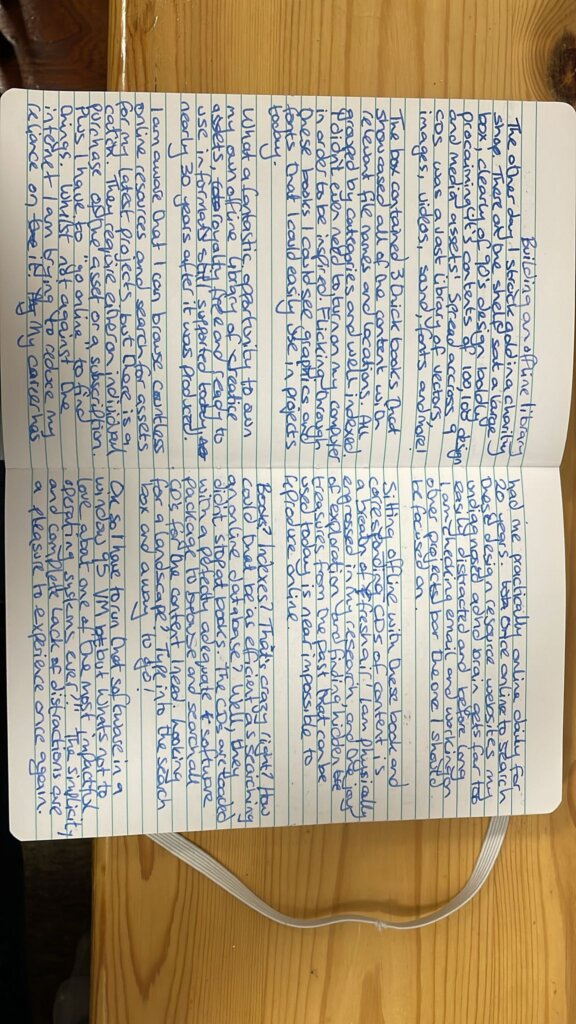 Building an offline library
The other day I struck gold in a charity
shop. There on the shelf sat a large
box, clearly of 90's design boldly
proclaiming it's contents of 100,100 design
and media assets! Spread across 9
CDs was a vast library of vectors,
images, videos, sound, fonts and more!
The box contained 3 brick books that
showcased all of the content with
relevant file names and locations. All
grouped by categories and well indexed
I didn't even need to turn on my computer
in order to be inspired. Flicking through
these books I could see graphics and
fonts that I could easily use in projects
today.
What a fantastic opportunity to own
my own offline library of creative
assets, royalty free and ready to
use in formats still supported today
nearly 30 years after it was produced.
I am aware that I can browse countless
online resources and search for assets
for my latest projects, but there is a
catch. They require either an individual
purchase of the asset or a subscription.
Plus I have to "go online" to find
things. Whilst not against the
internet I am trying to reduce my
reliance on the it. My career has
had me practically online 24/7 for
20 years. Once online to search
these design resource websites my
undiagnosed ADHD brain goes for tab
easily distracted and before long
I am checking email and working on
other projects bar the one I should
be focused.
Sitting offline with these book and
corresponding CDs of content is
a breath of fresh air. I am physically
engrossed in my research and the joy
of exploration and finding hidden
treasures from the past that can be
used today is near impossible to
reproduce online.
Bonus? Indexes? That's crazy right? How
could that be as efficient as searching
an online database? Well, they
didn't stop at books. The CDs are loaded
with a plenty adequate software
package to browse and search all
CD's for the content I need. Looking
for a landscape? Type into the search
box and away to go!
Ok, so I have to run that software in a
Windows 95 VM but what's not to
love about one of the most impactful
operating systems ever! The simplicity
and complete lack of distractions are
a pleasure to experience once again.